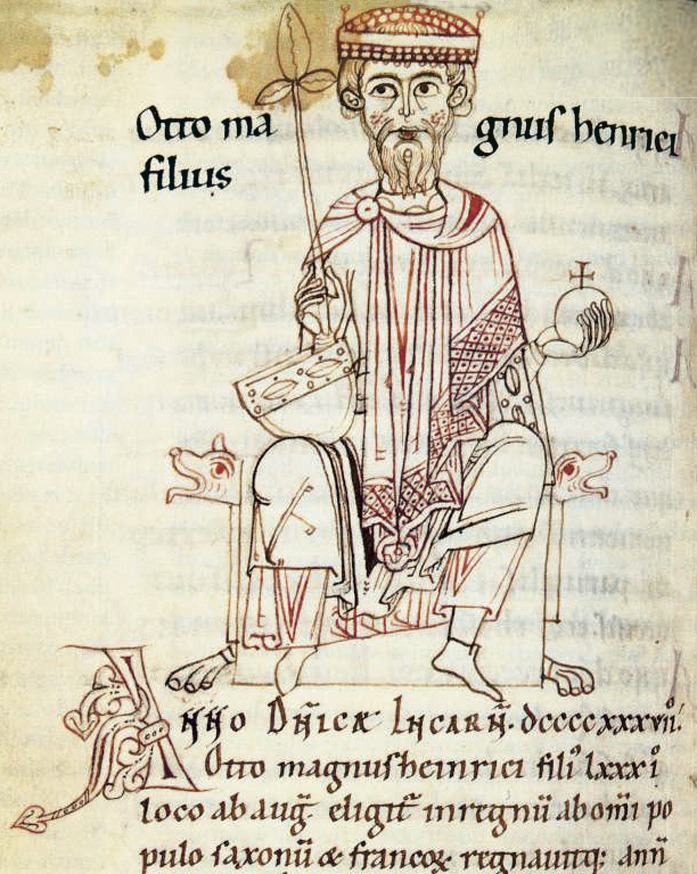 Otto ma gnus henrici
filius
Anno Dn̄icæ Incarn̄. dccccxxxvii.
Otto magnus heinrici fili⁹ lxxx i⁹
loco ab auḡ eligit᷑ in regnū ab om̄i po
pulo saxonū & francoꝝ regnauitq; ann̄